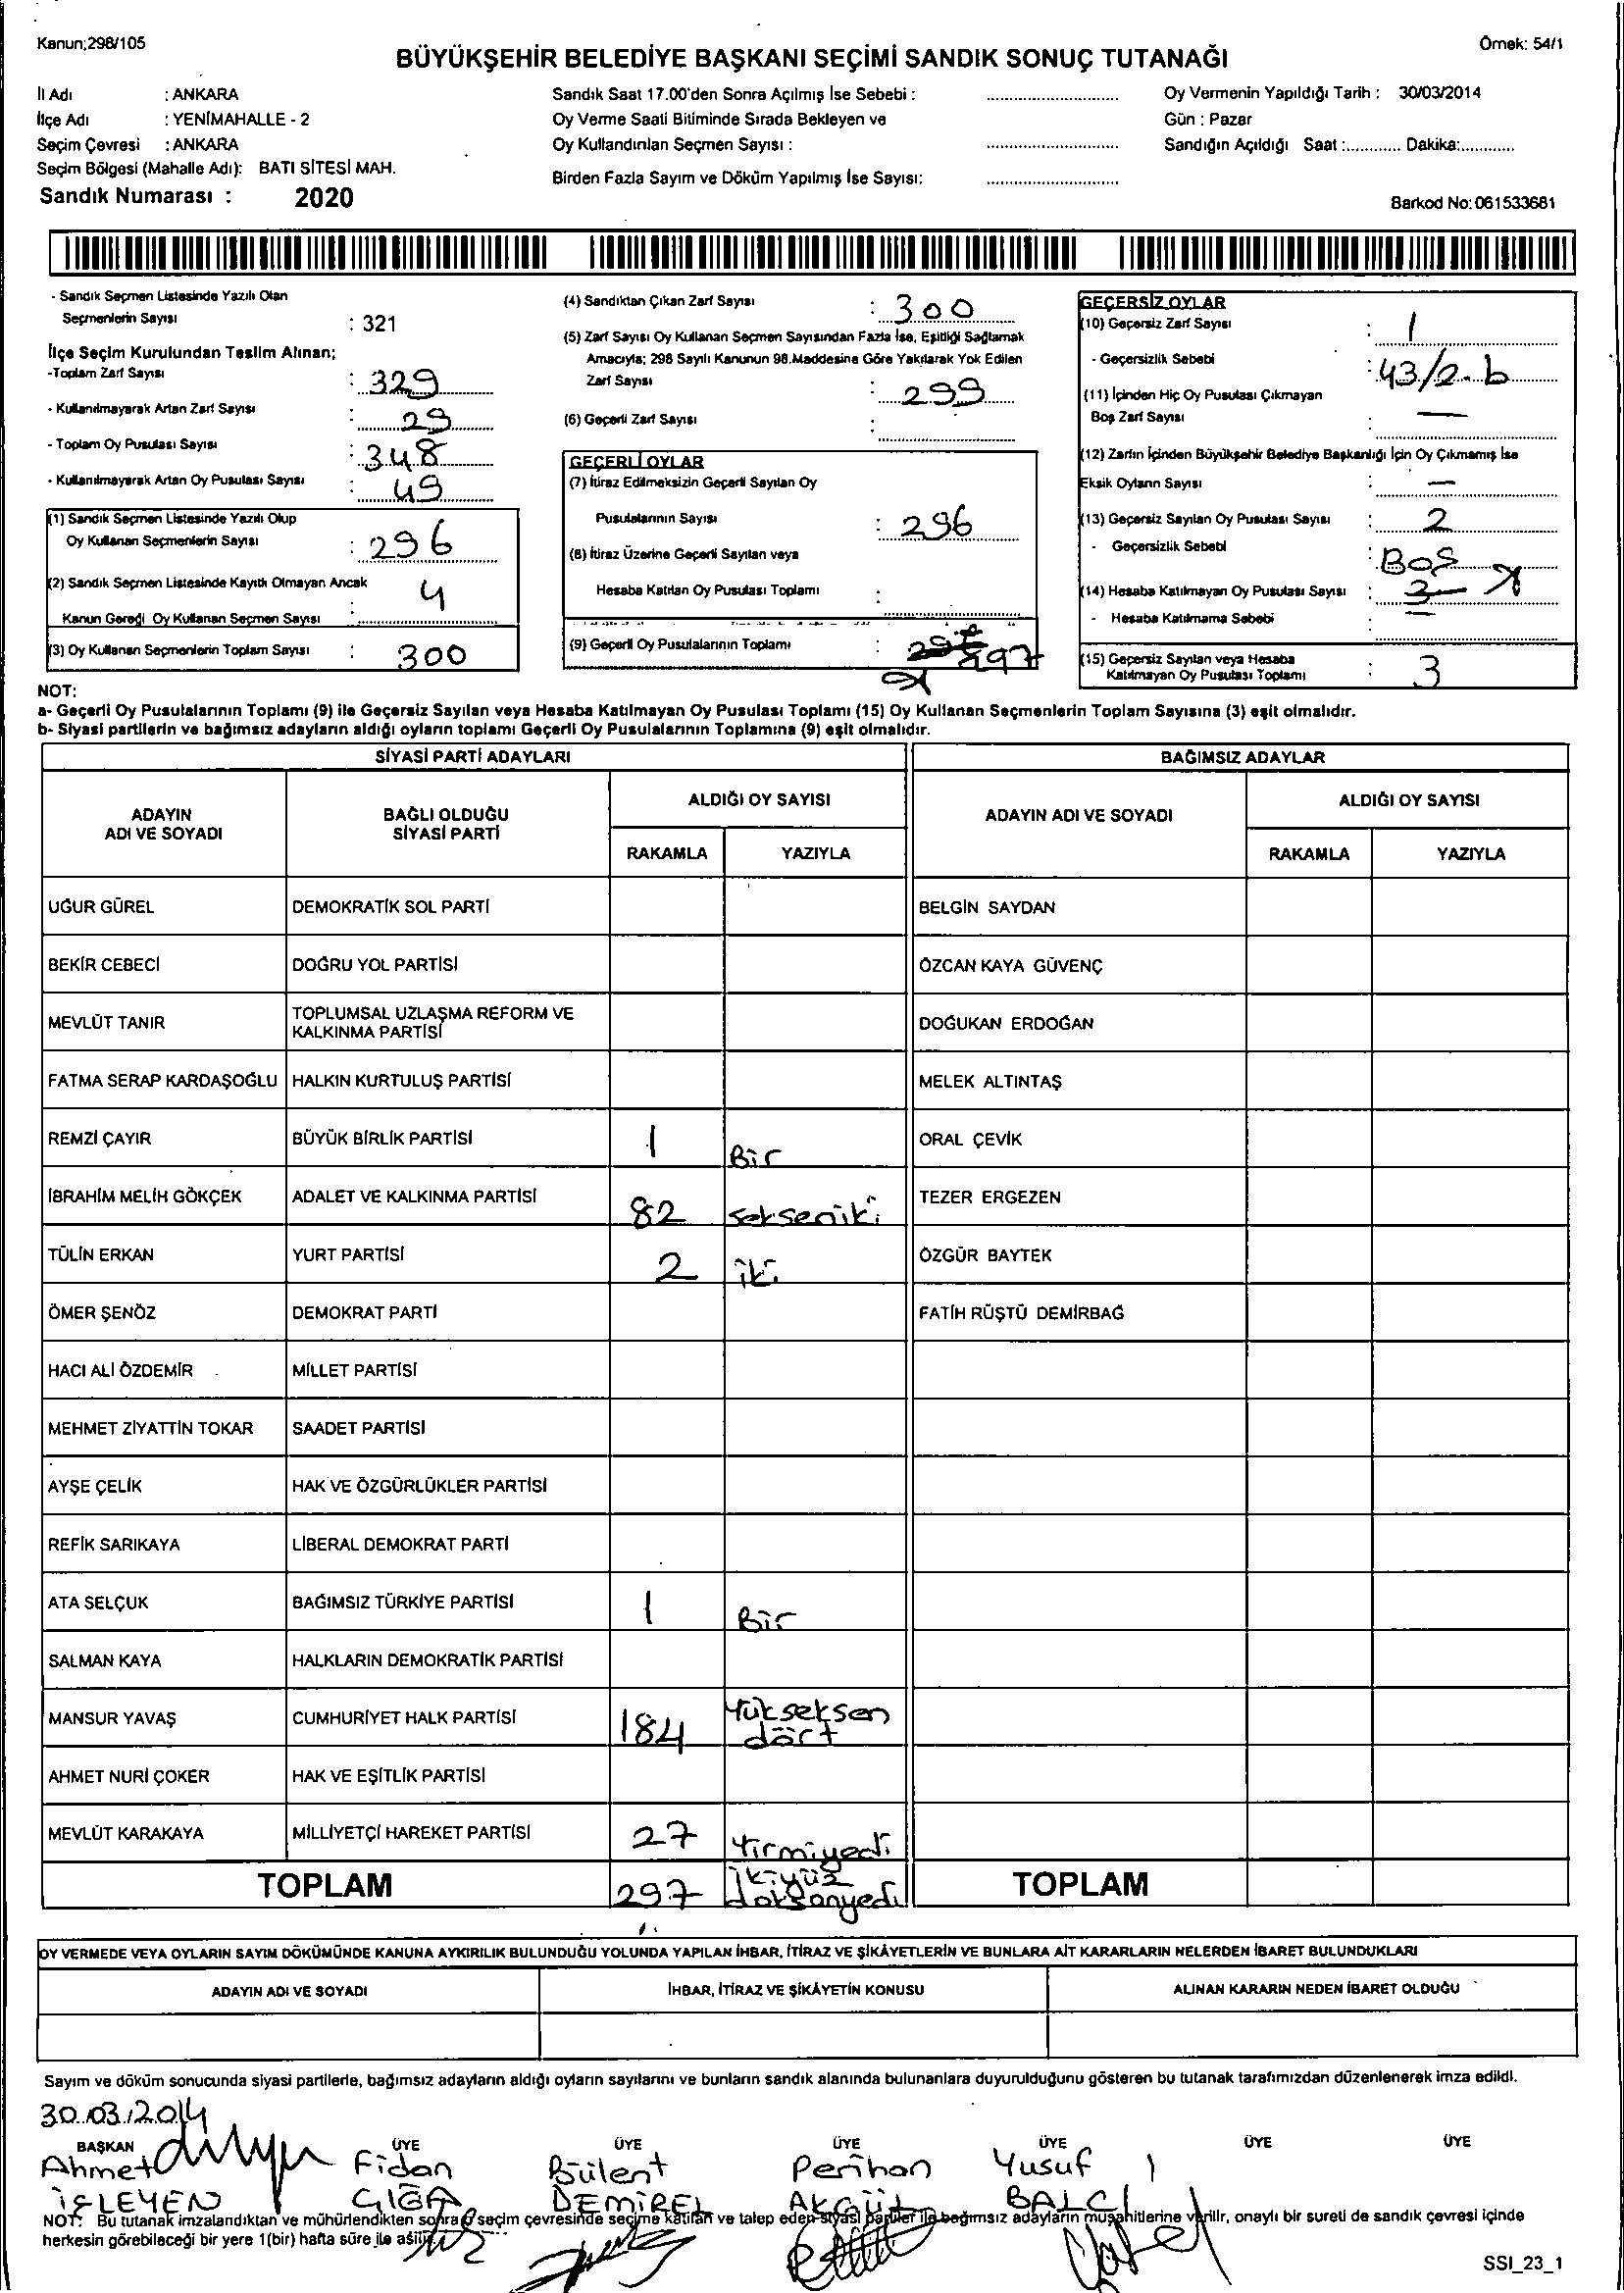 Kanun;298/105
Örnek: 54/1
BÜYÜKŞEHİR BELEDİYE BAŞKANI SEÇİMİ SANDIK SONUÇ TUTANAĞI
İl Adı : ANKARA
İlçe Adı : YENİMAHALLE - 2
Seçim Çevresi : ANKARA
Seçim Bölgesi (Mahalle Adı): BATI SİTESİ MAH.
Sandık Numarası : 2020
Sandık Saat 17.00'den Sonra Açılmış İse Sebebi : ............
Oy Verme Saati Bitiminde Sırada Bekleyen ve
Oy Kullandırılan Seçmen Sayısı : ............
Birden Fazla Sayım ve Döküm Yapılmış İse Sayısı: ............
Oy Vermenin Yapıldığı Tarih : 30/03/2014
Gün : Pazar
Sandığın Açıldığı Saat :............ Dakika:............
Barkod No: 061533681
- Sandık Seçmen Listesinde Yazılı Olan
Seçmenlerin Sayısı : 321
İlçe Seçim Kurulundan Teslim Alınan;
-Toplam Zarf Sayısı : 329
- Kullanılmayarak Artan Zarf Sayısı : 29
- Toplam Oy Pusulası Sayısı : 348
- Kullanılmayarak Artan Oy Pusulası Sayısı : 49
(1) Sandık Seçmen Listesinde Yazılı Olup
Oy Kullanan Seçmenlerin Sayısı : 296
(2) Sandık Seçmen Listesinde Kayıtlı Olmayan Ancak
Kanun Gereği Oy Kullanan Seçmen Sayısı : 4
(3) Oy Kullanan Seçmenlerin Toplam Sayısı : 300
(4) Sandıktan Çıkan Zarf Sayısı : 300
(5) Zarf Sayısı Oy Kullanan Seçmen Sayısından Fazla İse, Eşitliği Sağlamak
Amacıyla; 298 Sayılı Kanunun 98.Maddesine Göre Yakılarak Yok Edilen
Zarf Sayısı : 299
(6) Geçerli Zarf Sayısı :
GEÇERLİ OYLAR
(7) İtiraz Edilmeksizin Geçerli Sayılan Oy
Pusulalarının Sayısı : 296
(8) İtiraz Üzerine Geçerli Sayılan veya
Hesaba Katılan Oy Pusulası Toplamı :
(9) Geçerli Oy Pusulalarının Toplamı : 297
GEÇERSİZ OYLAR
(10) Geçersiz Zarf Sayısı : 1
- Geçersizlik Sebebi : 43/2-b
(11) İçinden Hiç Oy Pusulası Çıkmayan
Boş Zarf Sayısı : —
(12) Zarfın İçinden Büyükşehir Belediye Başkanlığı İçin Oy Çıkmamış İse
Eksik Oyların Sayısı : —
(13) Geçersiz Sayılan Oy Pusulası Sayısı : 2
- Geçersizlik Sebebi : Boş
(14) Hesaba Katılmayan Oy Pusulası Sayısı : 3
- Hesaba Katılmama Sebebi : —
(15) Geçersiz Sayılan veya Hesaba
Katılmayan Oy Pusulası Toplamı : 3
NOT:
a- Geçerli Oy Pusulalarının Toplamı (9) ile Geçersiz Sayılan veya Hesaba Katılmayan Oy Pusulası Toplamı (15) Oy Kullanan Seçmenlerin Toplam Sayısına (3) eşit olmalıdır.
b- Siyasi partilerin ve bağımsız adayların aldığı oyların toplamı Geçerli Oy Pusulalarının Toplamına (9) eşit olmalıdır.
SİYASİ PARTİ ADAYLARI BAĞIMSIZ ADAYLAR
ADAYIN ADI VE SOYADI BAĞLI OLDUĞU SİYASİ PARTİ ALDIĞI OY SAYISI ADAYIN ADI VE SOYADI ALDIĞI OY SAYISI
RAKAMLA YAZIYLA RAKAMLA YAZIYLA
UĞUR GÜREL DEMOKRATİK SOL PARTİ BELGİN SAYDAN
BEKİR CEBECİ DOĞRU YOL PARTİSİ ÖZCAN KAYA GÜVENÇ
MEVLÜT TANIR TOPLUMSAL UZLAŞMA REFORM VE KALKINMA PARTİSİ DOĞUKAN ERDOĞAN
FATMA SERAP KARDAŞOĞLU HALKIN KURTULUŞ PARTİSİ MELEK ALTINTAŞ
REMZİ ÇAYIR BÜYÜK BİRLİK PARTİSİ 1 Bir ORAL ÇEVİK
İBRAHİM MELİH GÖKÇEK ADALET VE KALKINMA PARTİSİ 82 sekseniki TEZER ERGEZEN
TÜLİN ERKAN YURT PARTİSİ 2 iki ÖZGÜR BAYTEK
ÖMER ŞENÖZ DEMOKRAT PARTİ FATİH RÜŞTÜ DEMİRBAĞ
HACI ALİ ÖZDEMİR MİLLET PARTİSİ
MEHMET ZİYATTİN TOKAR SAADET PARTİSİ
AYŞE ÇELİK HAK VE ÖZGÜRLÜKLER PARTİSİ
REFİK SARIKAYA LİBERAL DEMOKRAT PARTİ
ATA SELÇUK BAĞIMSIZ TÜRKİYE PARTİSİ 1 Bir
SALMAN KAYA HALKLARIN DEMOKRATİK PARTİSİ
MANSUR YAVAŞ CUMHURİYET HALK PARTİSİ 184 Yükseksen dört
AHMET NURİ ÇOKER HAK VE EŞİTLİK PARTİSİ
MEVLÜT KARAKAYA MİLLİYETÇİ HAREKET PARTİSİ 27 Yirmiyedi
TOPLAM 297 İkiyüz doksanyedi TOPLAM
OY VERMEDE VEYA OYLARIN SAYIM DÖKÜMÜNDE KANUNA AYKIRILIK BULUNDUĞU YOLUNDA YAPILAN İHBAR, İTİRAZ VE ŞİKÂYETLERİN VE BUNLARA AİT KARARLARIN NELERDEN İBARET BULUNDUKLARI
ADAYIN ADI VE SOYADI İHBAR, İTİRAZ VE ŞİKÂYETİN KONUSU ALINAN KARARIN NEDEN İBARET OLDUĞU
Sayım ve döküm sonucunda siyasi partilerle, bağımsız adayların aldığı oyların sayılarını ve bunların sandık alanında bulunanlara duyurulduğunu gösteren bu tutanak tarafımızdan düzenlenerek imza edildi.
30.03.2014
BAŞKAN ÜYE ÜYE ÜYE ÜYE ÜYE ÜYE
Ahmet Fidan Bülent Perihan Yusuf
İŞLEYEN DEMİREL AKGÜL BALCI
NOT: Bu tutanak imzalandıktan ve mühürlendikten sonra seçim çevresinde seçime katılan ve talep eden siyasi partiler ile bağımsız adayların müşahitlerine verilir, onaylı bir sureti de sandık çevresi içinde
herkesin görebileceği bir yere 1(bir) hafta süre ile asılır.
SSI_23_1